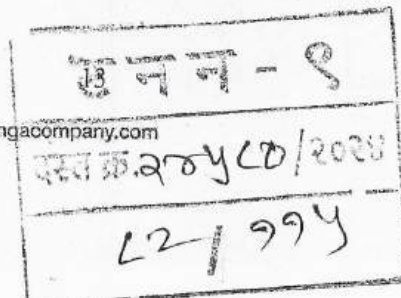 उनन - ९
13
ngacompany.com
दस्त क्र. २०५८०/२०२४
८२/११५